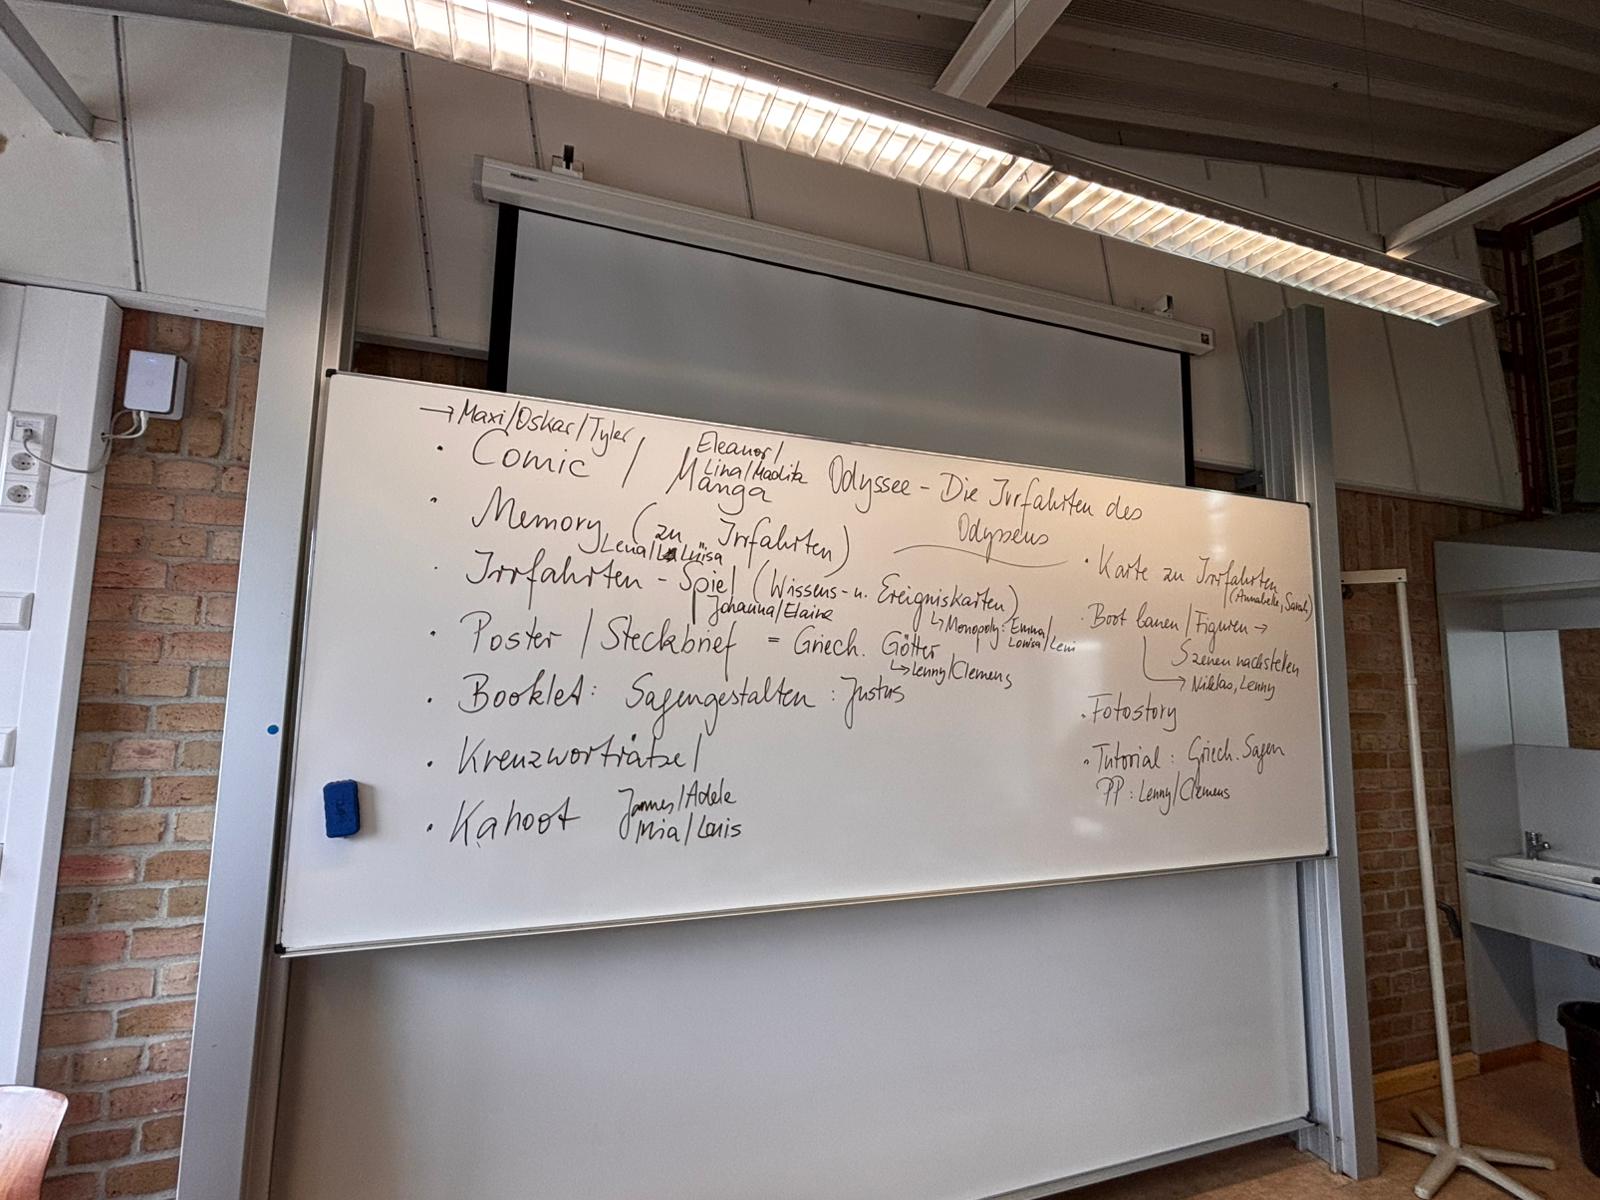 → Maxi/Oskar/Tyler
• Comic / Manga
Eleanor/
Lina/Madita
Odyssee - Die Irrfahrten des
Odysseus
• Memory (zu Irrfahrten)
Lena/Luisa
• Irrfahrten - Spiel (Wissens- u. Ereigniskarten)
Johanna/Elaine
↳ Monopoly: Emma/
Louisa/Leni
• Poster / Steckbrief = Griech. Götter
↳ Lenny/Clemens
• Booklet: Sagengestalten : Justus
• Kreuzworträtsel
• Kahoot
James/Adele
Mia/Louis
• Karte zu Irrfahrten
(Annabelle, Sarah)
• Boot bauen / Figuren →
Szenen nachstellen
→ Niklas, Lenny
• Fotostory
• Tutorial : Griech. Sagen
PP : Lenny/Clemens